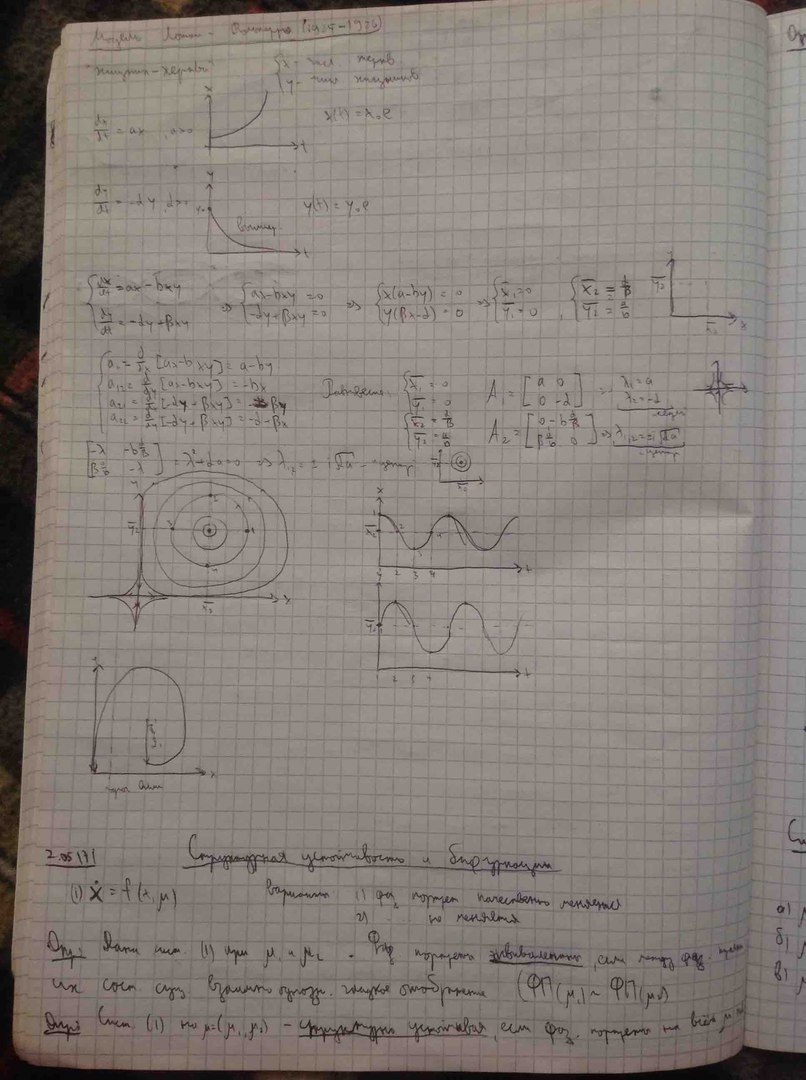 Модель Лотки - Вольтерра (1925-1926)
"хищник-жертва"
{x - числ жертв
y - числ хищников
dx/dt = ax, a>0
x
t
x(t) = x₀e
dy/dt = -αy, α>0
y
y₀
вымир.
t
y(t) = y₀e
{dx/dt = ax - bxy
dy/dt = -αy + βxy
⇒ {ax - bxy = 0
-αy + βxy = 0
⇒ {x(a-by) = 0
y(βx-α) = 0
⇒ {x̄₁ = 0
ȳ₁ = 0
, {x̄₂ = α/β
ȳ₂ = a/b
y
ȳ₂
x̄₂
x
[ax - bxy] = a - by
a₁₂ = [ax - bxy] = -bx
a₂₁ = [-αy + βxy] = βy
a₂₂ = [-αy + βxy] = -α-βx
{x̄₁ = 0
ȳ₁ = 0
{x̄₂ = α/β
ȳ₂ = a/b
A₁ = [a 0
0 -α]
λ₁ = a
λ₂ = -α
седло
A₂ = [0 -bα/β
βa/b 0] ⇒ λ₁,₂ = ± i√αa
- центр
[-λ -bα/β
βa/b -λ] = λ² + αa = 0 ⇒ λ₁,₂ = ± i√αa - центр
ȳ₂
x̄₂
y
ȳ₂
x̄₂
x
x
x̄₂
2 3 4
t
y
ȳ₂
2 3 4
t
x
2.05.17
Структурная устойчивость и бифуркации
(1) ẋ = f(x, μ)
варианты 1) фаз. портрет качественно меняется
2) не меняется
Опр: Дана сист. (1) при μ₁ и μ₂. Фаз портреты эквивалентны, если между фаз.
их сост. сущ. взаимно однозн. гладкое отображение (ФП(μ₁) ~ ФП(μ₂))
Опр: Сист. (1) на μ=(μ₁, μ₂) - структурно устойчивая, если фаз. портреты на всём
а)
б)
в)